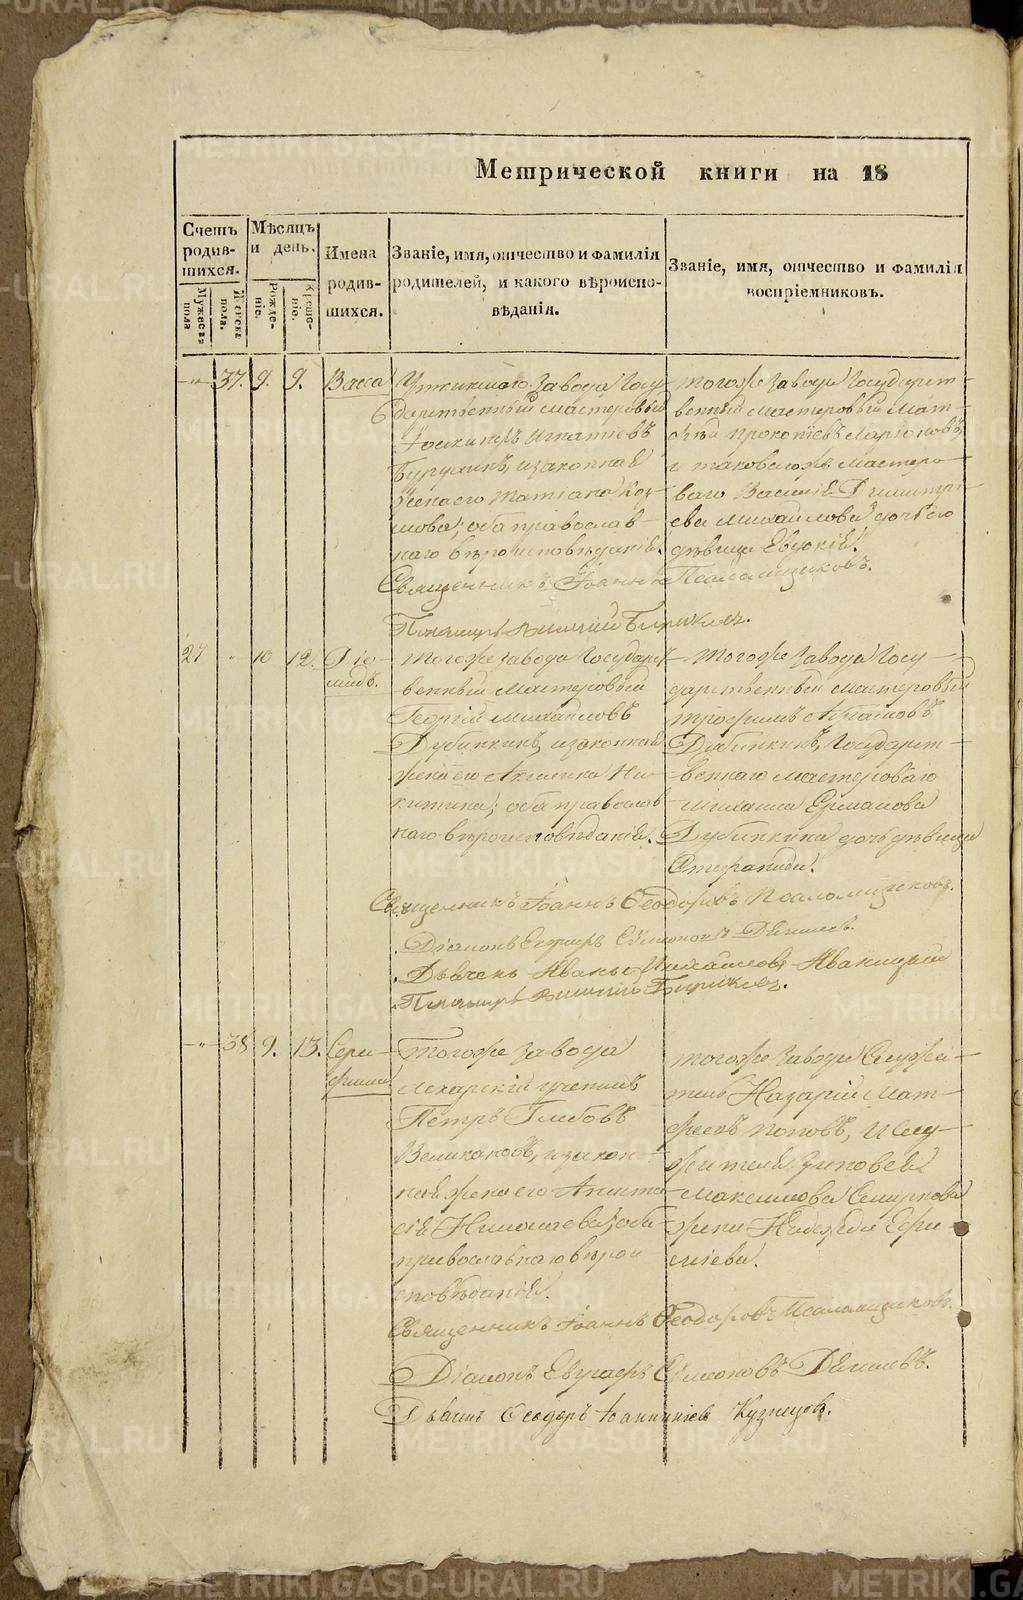 Метрической книги на 18
Счетъ родив-шихся.
Мужеска пола
Женска пола.
Мѣсяцъ и день.
Рожде-ніе.
Креще-ніе.
Имена родив-шихся.
Званіе, имя, отчество и фамилія родителей, и какого вѣроиспо-вѣданія.
Званіе, имя, отчество и фамилія воспріемниковъ.
37. 9. 9. Васса
завода Госу-
дарственный мастеровый
Игнатіевъ
и законная
жена его Татіана Коз-
мова; оба православ-
наго вѣроисповѣданія.
тогоже завода Государст-
венный мастеровый Мат-
ѳѣй Прокопіевъ Ларіоновъ,
и таковагожъ мастеро-
ваго Василія Димитрі-
ева Михайлова дочь его
дѣвица Евдокія.
Священникъ Іоаннъ Псаломщиковъ.
Пономарь Бирюковъ.
27 10 12. Діо-
мидъ.
Тогоже завода Государст-
венный мастеровый
Георгій Михайловъ
Дубинкинъ, и законная
жена его Акилина Ни-
китина; оба православ-
наго вѣроисповѣданія.
Тогоже завода Госу-
дарственный мастеровый
Трофимъ
Дубинкинъ, Государст-
веннаго мастероваго
Михаила Ермакова
Дубинкина дочь дѣвица
Священникъ Іоаннъ Ѳеодоровъ Псаломщиковъ.
Діаконъ Симоновъ
Дьячекъ Иванъ Михайловъ
Пономарь Бирюковъ.
38 9. 13. Сера-
фима
Тогоже завода
Лекарскій ученикъ
Петръ Глебовъ
Великановъ, и закон-
ная жена его Анаста-
сія Николаева; оба
православнаго вѣрои
сповѣданія.
тогоже завода Служи-
тель Назарій Мат-
ѳеевъ Поповъ, и Слу-
жителя Зиновея
Максимова Смирнова
жена Надежда Ефи-
міева.
Священникъ Іоаннъ Ѳеодоровъ Псаломщиковъ.
Діаконъ Симоновъ
Дьячекъ Ѳеодоръ Іоанникіевъ Кузнецовъ.
METRIKI.GASO-URAL.RU